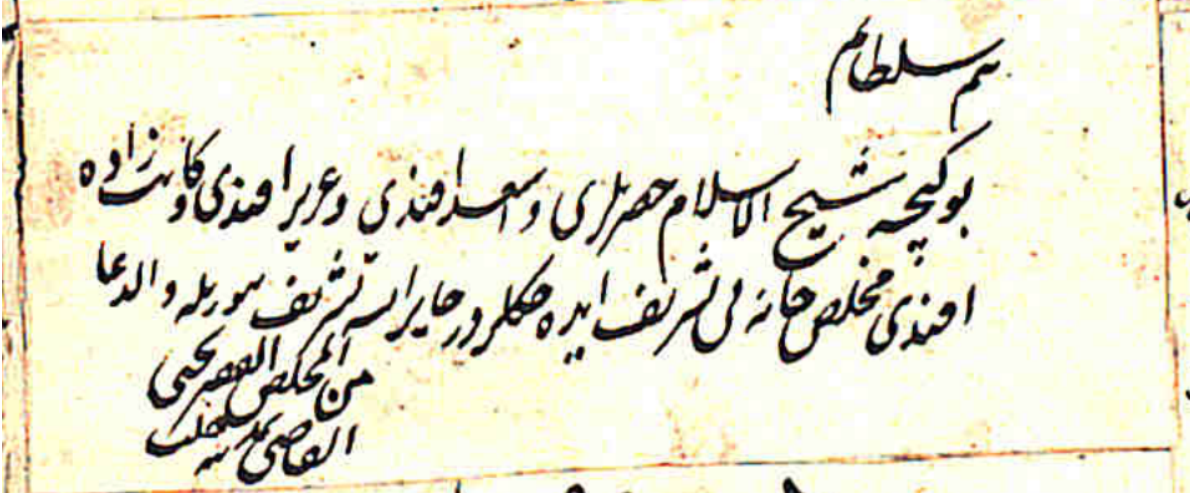 هم سلطانم
بو كيجه شيخ الاسلام حضرتلرى و اسعد افندى و عزيز افندى و كاتب زاده
افندى مخلص خانه لى تشريف ايده جكلردر جابر ايسه تشريف بيوريله والدعا
من المخلص الفقير يحيى
القاضى بمدينه